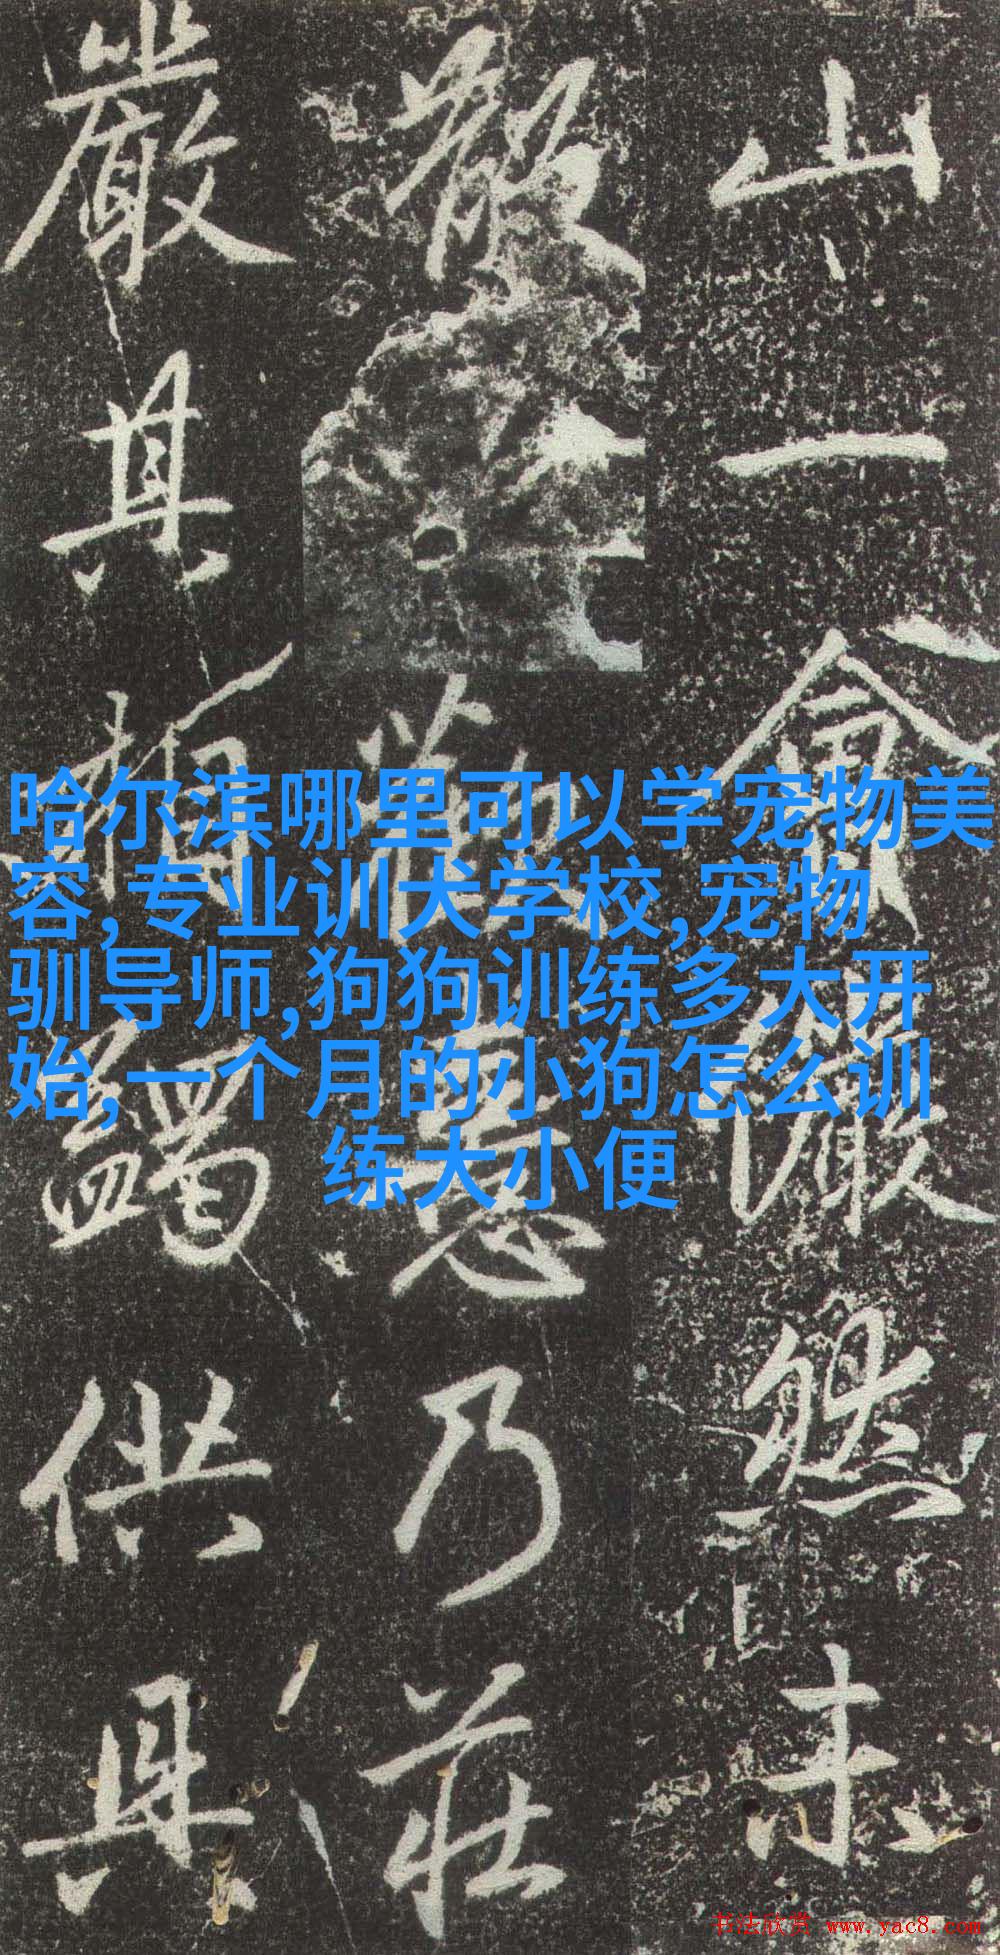 山一食
然未
乃莊
嚴具
供具
哈尔滨哪里可以学宠物美
容,专业训犬学校,宠物
驯导师,狗狗训练多大开
始,一个月的小狗怎么训
练大小便
书法欣赏 www.yac8.com